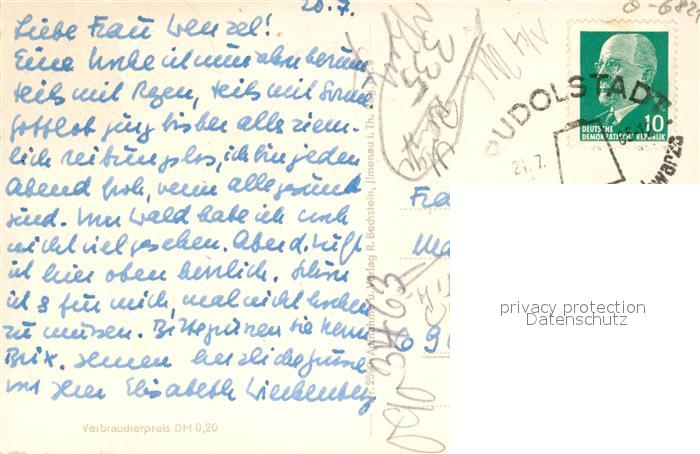 20.7.
Liebe Frau Wenzel!
Eine Woche ist nun schon herum,
teils mit Regen, teils mit Sonne
gottlob ging bisher alles ziem-
lich reibungslos, ich bin jeden
Abend froh, wenn alle gesund
sind. Vom Wald habe ich noch
nicht viel gesehen. Aber d. Luft
ist hier oben herrlich. Schön
ist's für mich, mal nicht kochen
zu müssen. Bitte grüssen Sie Herrn
Brix. Ihnen herzliche Grüsse
von Ihrer Elisabeth
Verbraucherpreis DM 0,20
Verlag R. Bechstein, Ilmenau i. Th.
RUDOLSTADT
21.7.
DEUTSCHE
DEMOKRATISCHE REPUBLIK
10
Fra
69
3463
privacy protection
Datenschutz